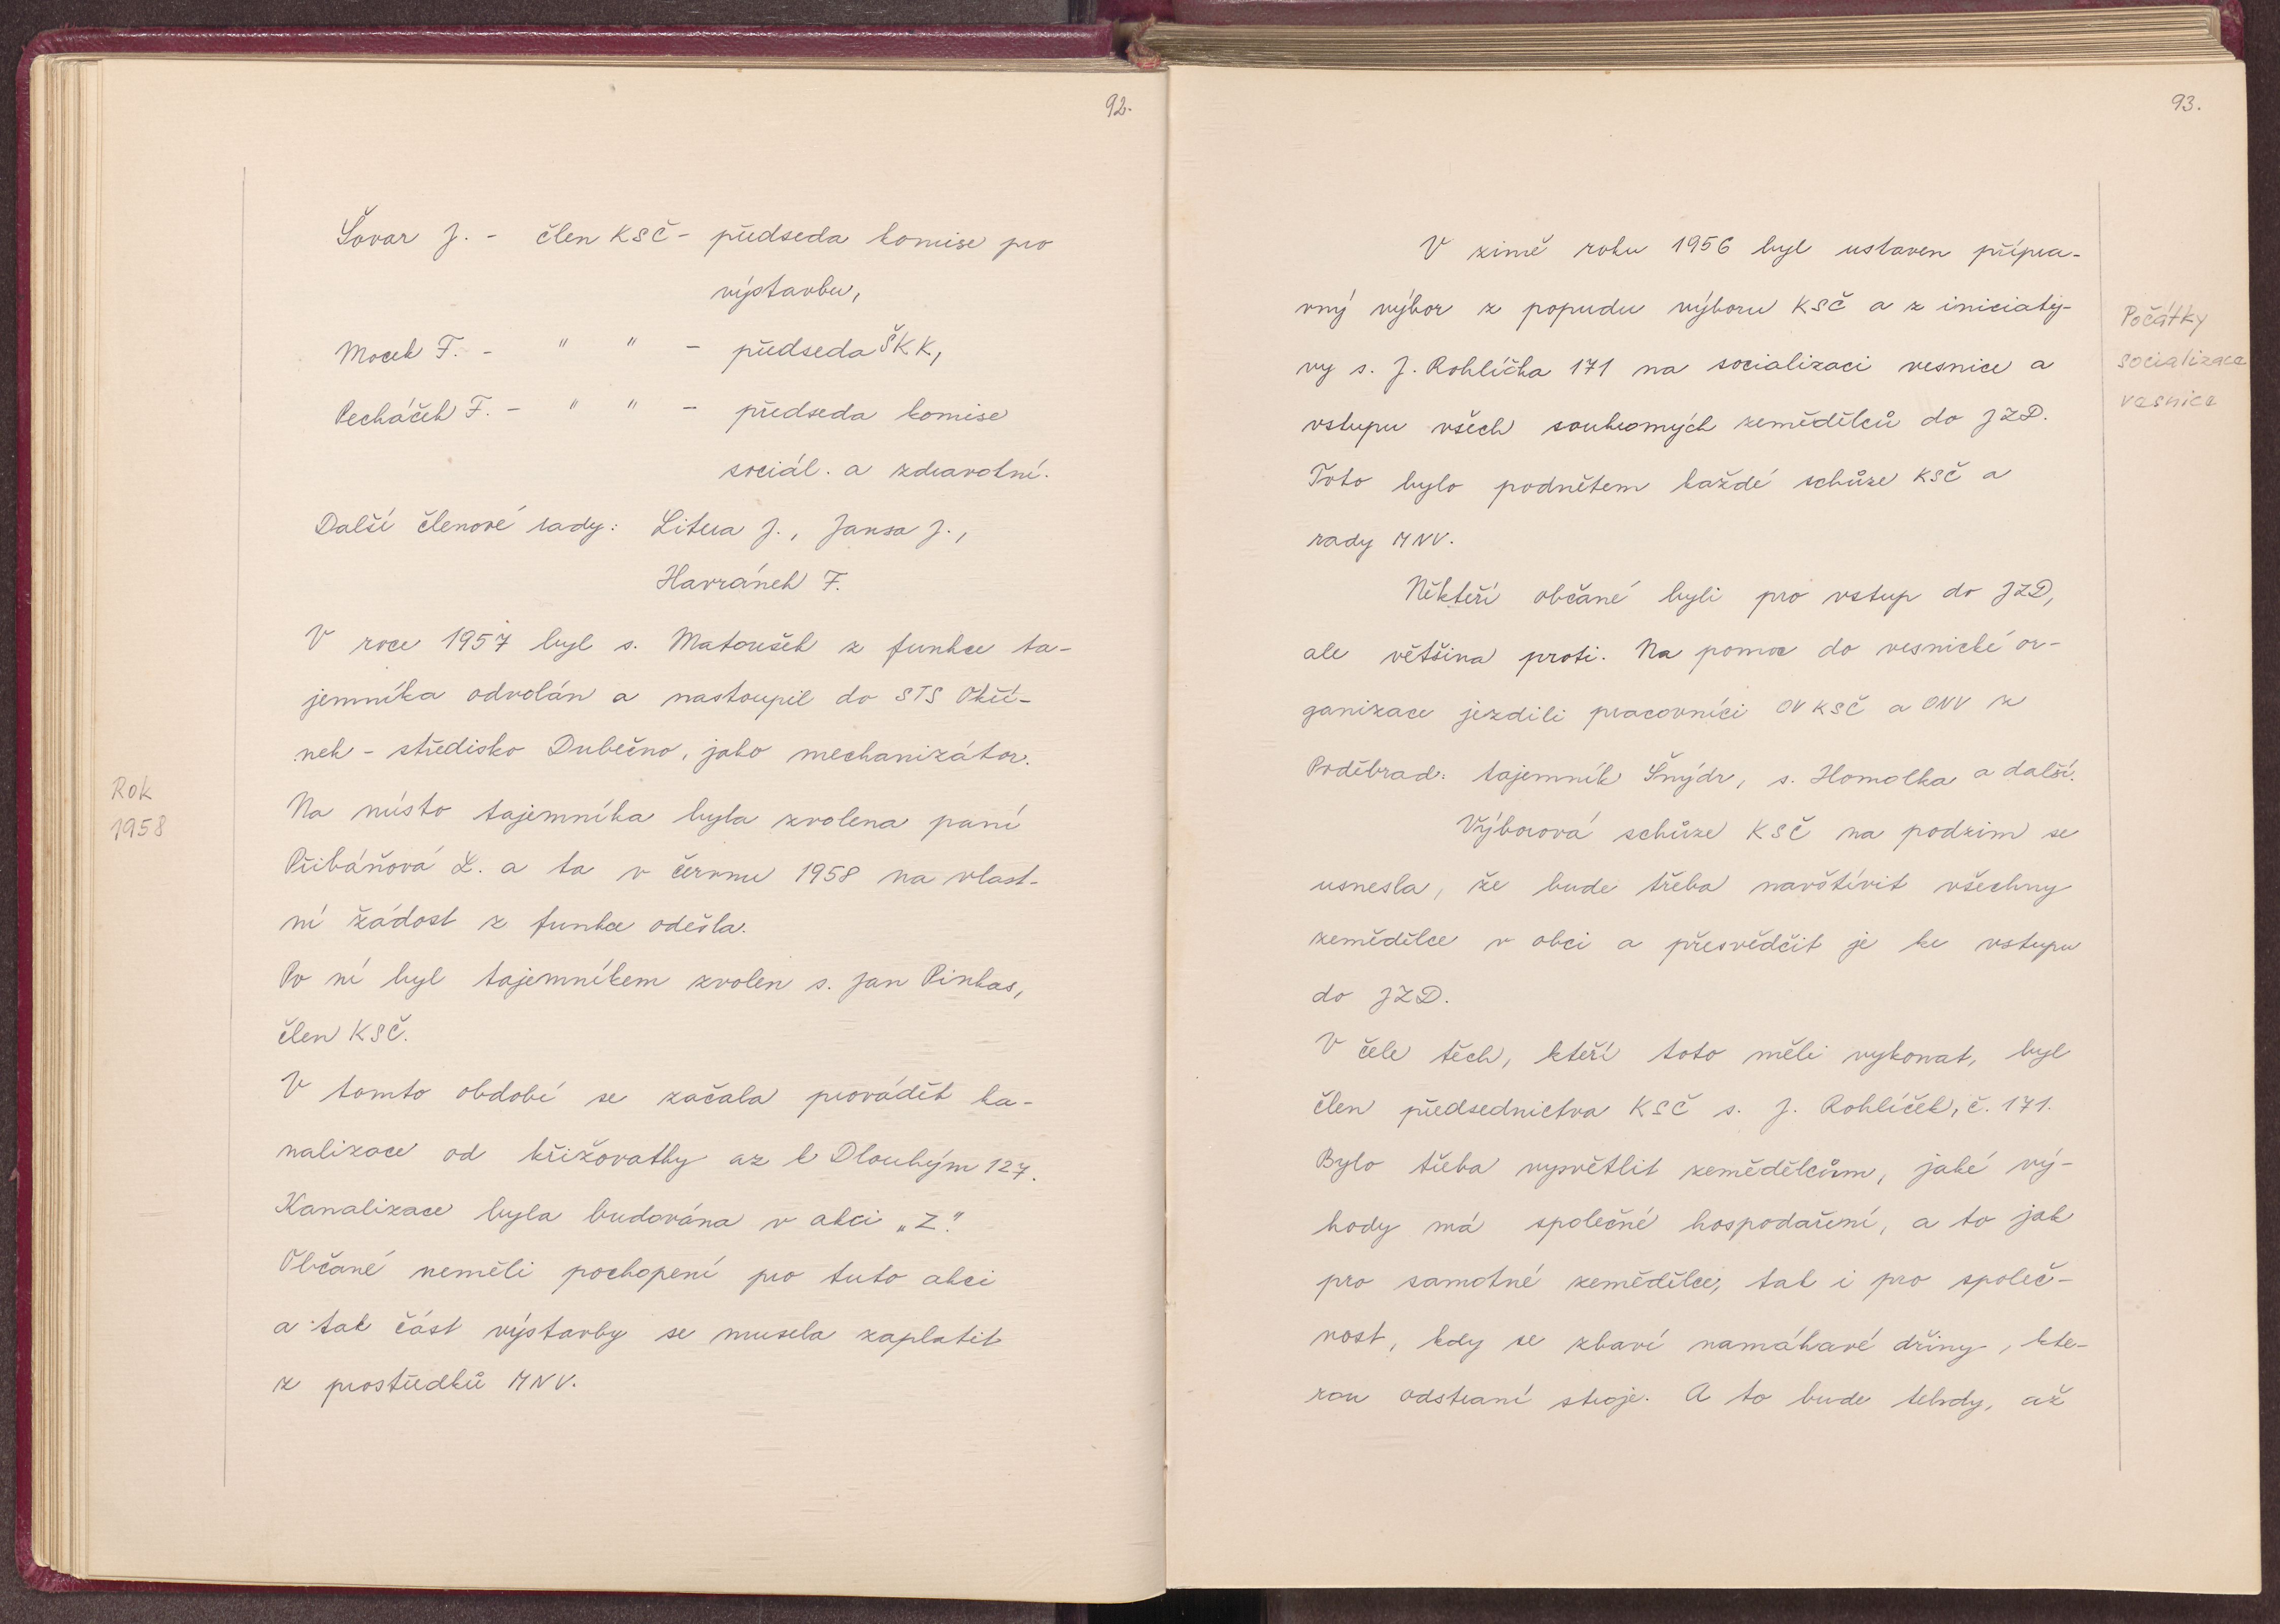 92.
Šovar J. - člen KSČ - předseda komise pro
výstavbu,
Mocek F. - " " - předseda ŠKK,
Pecháček F. - " " - předseda komise
sociál. a zdravotní.
Další členové rady: Litera J., Jansa J.,
Havránek F.
V roce 1957 byl s. Matoušek z funkce ta-
jemníka odvolán a nastoupil do STS Okří-
nek - středisko Dubečno, jako mechanizátor.
Rok
1958
Na místo tajemníka byla zvolena paní
Přibáňová L. a ta v červnu 1958 na vlast-
ní žádost z funkce odešla.
Po ní byl tajemníkem zvolen s. Jan Pinkas,
člen KSČ.
V tomto období se začala provádět ka-
nalizace od křižovatky az k Dlouhým 127.
Kanalizace byla budována v akci „Z".
Občané neměli pochopení pro tuto akci
a tak část výstavby se musela zaplatit
z prostředků MNV.
93.
V zimě roku 1956 byl ustaven přípra-
vný výbor z popudu výboru KSČ a z iniciatý-
vy s. J. Rohlíčka 171 na socializaci vesnice a
vstupu všech soukromých zemědělců do JZD.
Počátky
socializace
vesnice
Toto bylo podnětem každé schůze KSČ a
rady MNV.
Někteří občané byli pro vstup do JZD,
ale většina proti. Na pomoc do vesnické or-
ganizace jezdili pracovníci OV KSČ a ONV z
Poděbrad: tajemník Šnýdr, s. Homolka a další.
Výborová schůze KSČ na podzim se
usnesla, že bude třeba navštívit všechny
zemědělce v obci a přesvědčit je ke vstupu
do JZD.
V čele těch, kteří toto měli vykonat, byl
člen předsednictva KSČ s. J. Rohlíček, č. 171.
Bylo třeba vysvětlit zemědělcům, jaké vý-
hody má společné hospodaření, a to jak
pro samotné zemědělce, tak i pro společ-
nost, kdy se zbaví namáhavé dřiny, kte-
rou odstraní stroje. A to bude tehdy, až